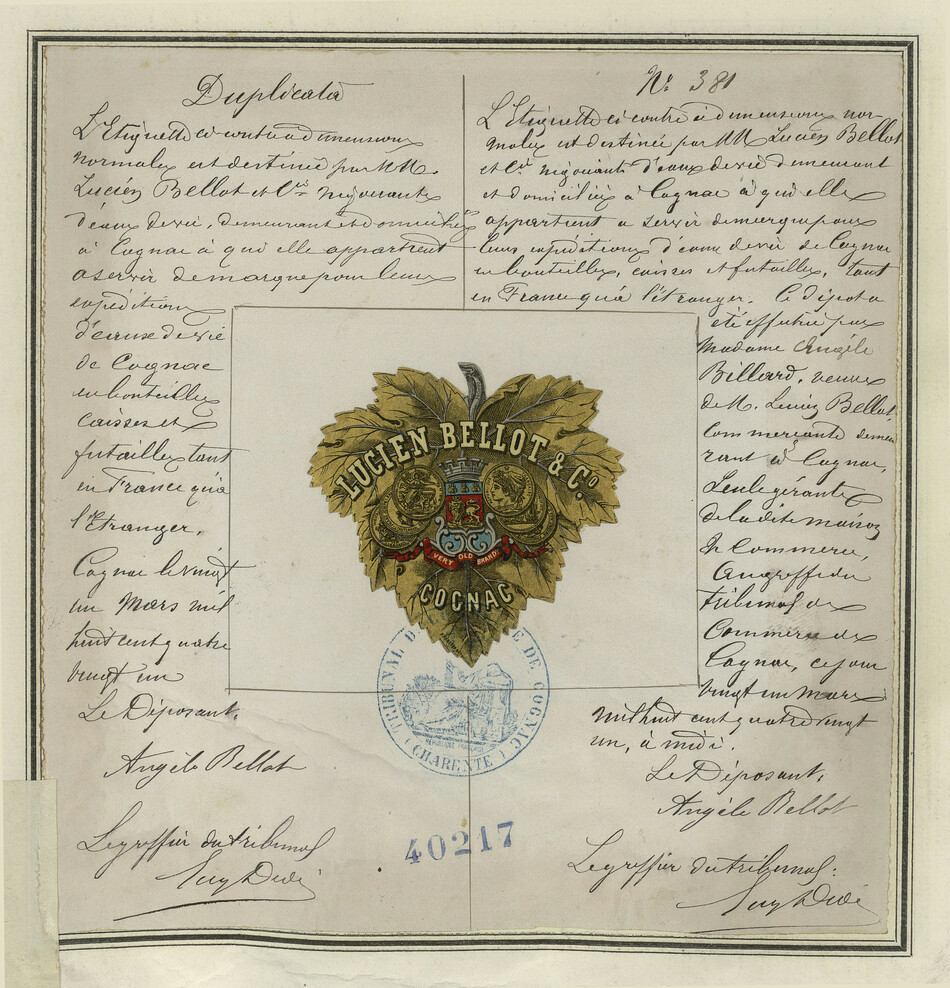 Duplicata
L'Etiquette ci-contre à dimensions
normales est destinée par MM.
Lucien Bellot et Cie négociants
d'eaux de vie, demeurant et domiciliés
à Cognac à qui elle appartient
a servir de marque pour leurs
expéditions
d'eaux de vie
de Cognac
en bouteilles
caisses et
futailles tant
en France qu'à
l'Etranger.
Cognac le vingt
un Mars mil
huit cent quatre
vingt un
Le Déposant.
Angèle Bellot
Le greffier du tribunal
No 381
L'Etiquette ci-contre à dimensions nor-
males est destinée par MM Lucien Bellot
et Cie négociants d'eaux de vie demeurant
et domiciliés à Cognac à qui elle
appartient a servir de marque pour
leurs expéditions d'eaux de vie de Cognac
en bouteilles, caisses et futailles, tant
en France qu'à l'étranger. Ce dépot a
été effectué par
Madame Angèle
Billard, veuve
de M. Lucien Bellot,
Commercante demeu
rant à Cognac,
Seule gérante
de la dite maison
de Commerce,
Au greffe du
tribunal de
Commerce de
Cognac, ce jour
vingt un mars
mil huit cent quatre vingt
un, à midi.
Le Déposant.
Angèle Bellot
Le greffier du tribunal:
LUCIEN BELLOT & Co.
VERY OLD BRANDY
COGNAC
TRIBUNAL D E DE COGNAC
CHARENTE
40217